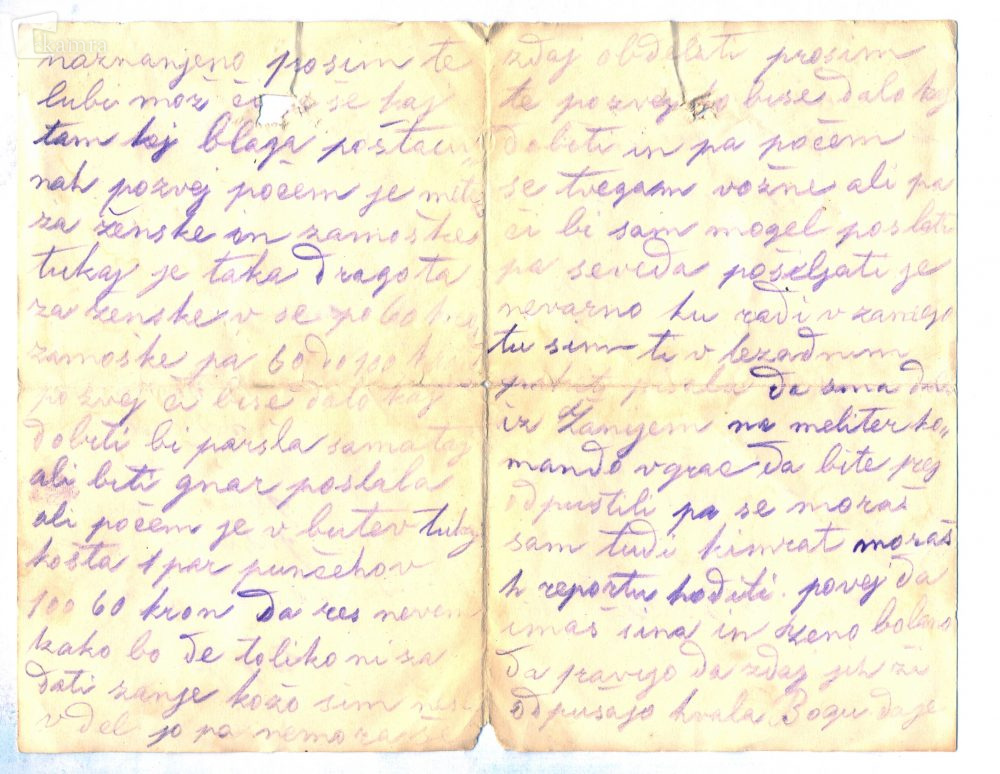 kamra
naznanjeno prosim te
lubi mož če še kaj
tam kej blaga poštacu
nah pozvej počem je
za ženske in zamoške
tukaj je taka dragota
za ženske v se po 60
zamoške pa 60 do 100
pozvej či bise dalo kaj
dobiti bi paršla sama taj
ali biti gnar poslala
ali počem je v butev tukaj
košta 1 par punčehov
100 60 kron da res nevem
kako bo de toliko ni za
dati zanje kožo sim
v del jo pa nemorem
zdaj obdelati prosim
te pozvej ko bise dalo kaj
dobiti in pa počem
se tvegam vožne ali pa
či bi sam mogel poslati
pa seveda pošiljati je
nevarno ku radi v zamejo
tu sim ti v tezadnim
pisala da sma dala
iz Zanijem na meliter ko„
mando v grac da bite prej
odpustili pa se moraš
sam tudi kimrat moraš
k reportu hoditi. povej da
imaš sina in ženo bolano
da pravijo da zdaj jih ži
odpušajo hvala Bogu da je